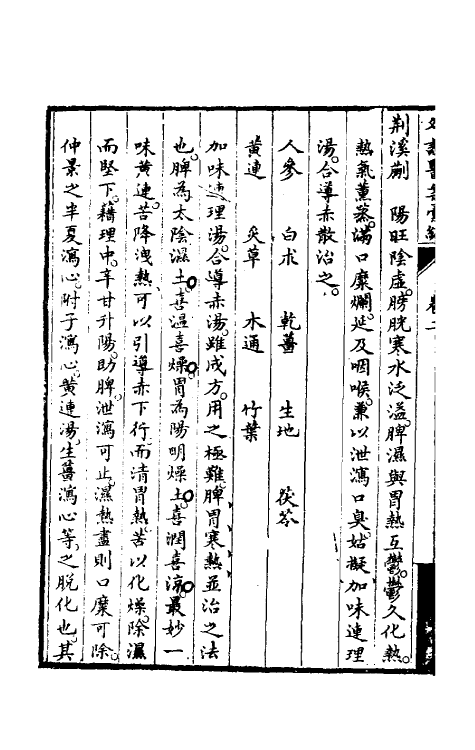 荆溪蒯　陽旺陰虛。膀胱寒水泛溢。脾濕與胃熱互鬱。鬱久化熱。
熱氣薰蒸。滿口糜爛。延及咽喉。兼以泄瀉口臭。姑擬加味連理
湯。合導赤散治之。
人參　白朮　乾薑　生地　茯苓
黃連　炙草　木通　竹葉
加味連理湯。合導赤湯。雖成方。用之極難。脾胃寒熱並治之法
也。脾為太陰濕土。喜溫喜燥。胃為陽明燥土。喜潤喜涼。最妙一
味黃連。苦降洩熱。可以引導赤下行。而清胃熱。苦以化燥。除濕
而堅下。藉理中。辛甘升陽。助脾。泄瀉可止。濕熱盡則口糜可除。
仲景之半夏瀉心。附子瀉心。黃連湯。生薑瀉心等。之脫化也。其